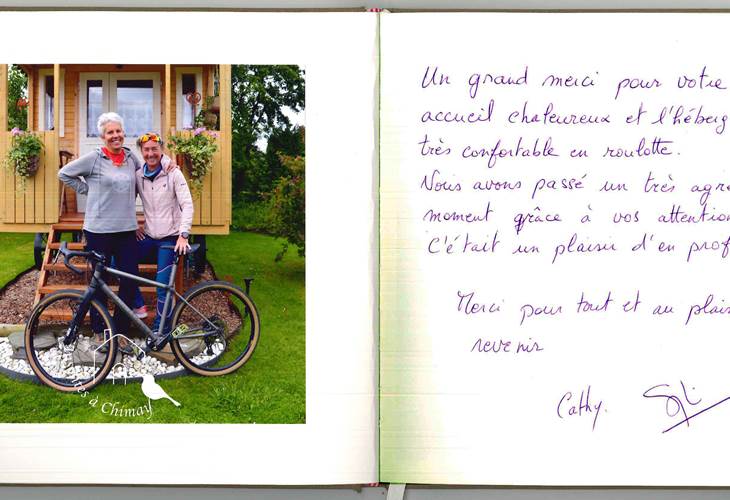 à Chimay
Un grand merci pour votre
accueil chaleureux et l'héberg
très confortable en roulotte.
Nous avons passé un très agré
moment grâce à vos attention
C'était un plaisir d'en prof
Merci pour tout et au plais
revenir
Cathy.